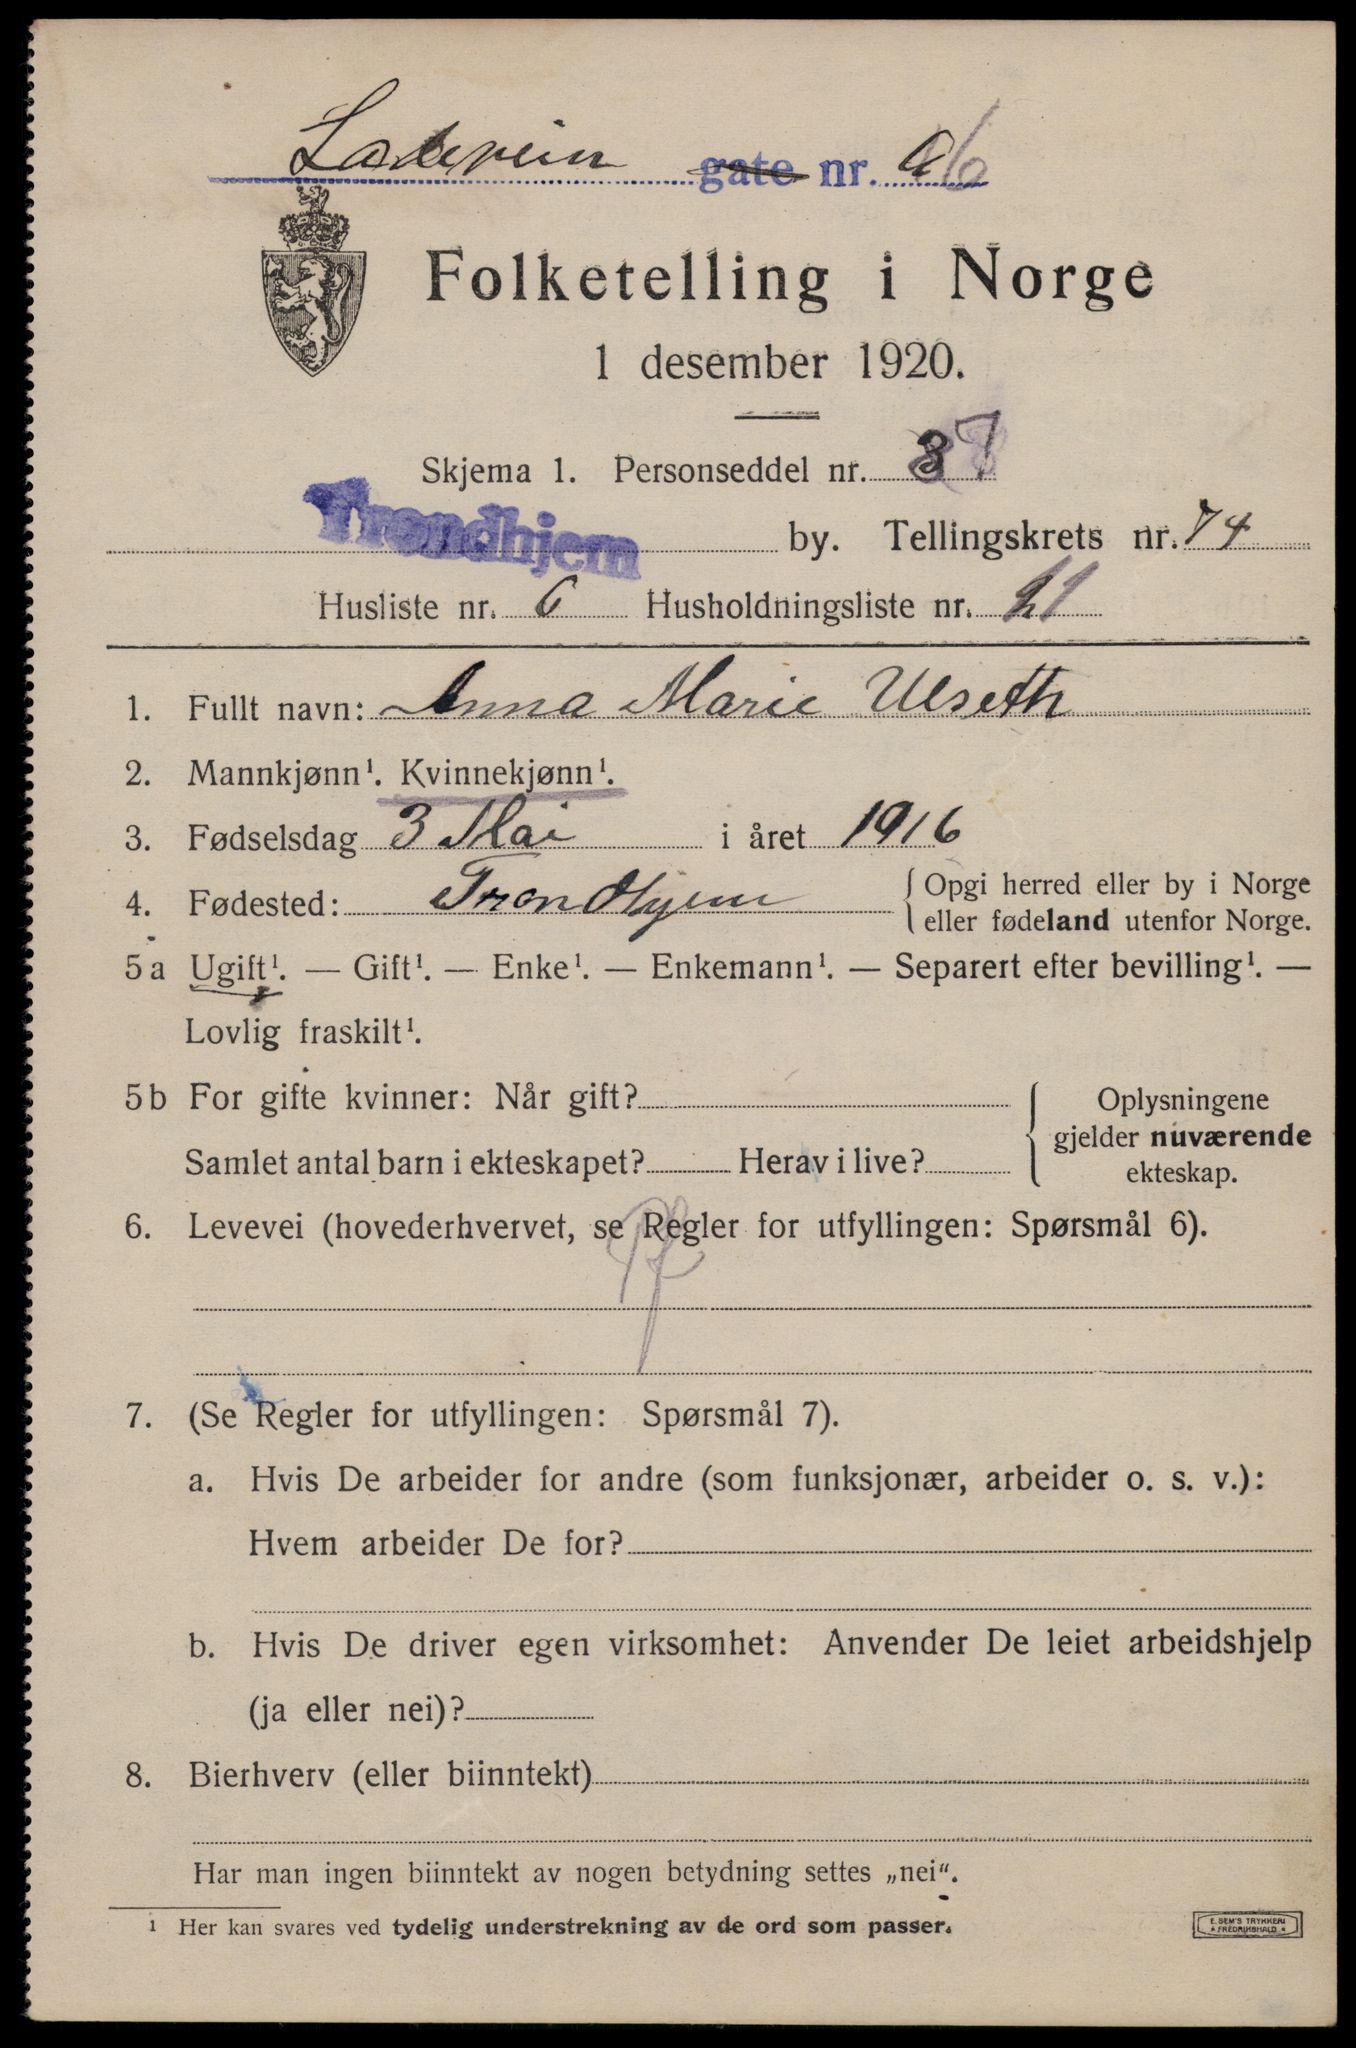 Ladevein gate nr. 16
Folketelling i Norge
1 desember 1920.
Skjema 1. Personseddel nr. 37
Trondhjem by. Tellingskrets nr. 74
Husliste nr. 6 Husholdningsliste nr. 21
1. Fullt navn: Anna Marie Ulseth
2. Mannkjønn¹. Kvinnekjønn¹.
3. Fødselsdag 3 Mai i året 1916
4. Fødested: Trondhjem { Opgi herred eller by i Norge
eller fødeland utenfor Norge.
5 a Ugift¹. — Gift¹. — Enke¹. — Enkemann¹. — Separert efter bevilling¹. —
Lovlig fraskilt¹.
5 b For gifte kvinner: Når gift? { Oplysningene
gjelder nuværende
Samlet antal barn i ekteskapet? Herav i live? ekteskap.
6. Levevei (hovederhvervet, se Regler for utfyllingen: Spørsmål 6).
7. (Se Regler for utfyllingen: Spørsmål 7).
a. Hvis De arbeider for andre (som funksjonær, arbeider o. s. v.):
Hvem arbeider De for?
b. Hvis De driver egen virksomhet: Anvender De leiet arbeidshjelp
(ja eller nei)?
8. Bierhverv (eller biinntekt)
Har man ingen biinntekt av nogen betydning settes „nei".
¹ Her kan svares ved tydelig understrekning av de ord som passer.
E. SEM'S TRYKKERI
FREDRIKSHALD